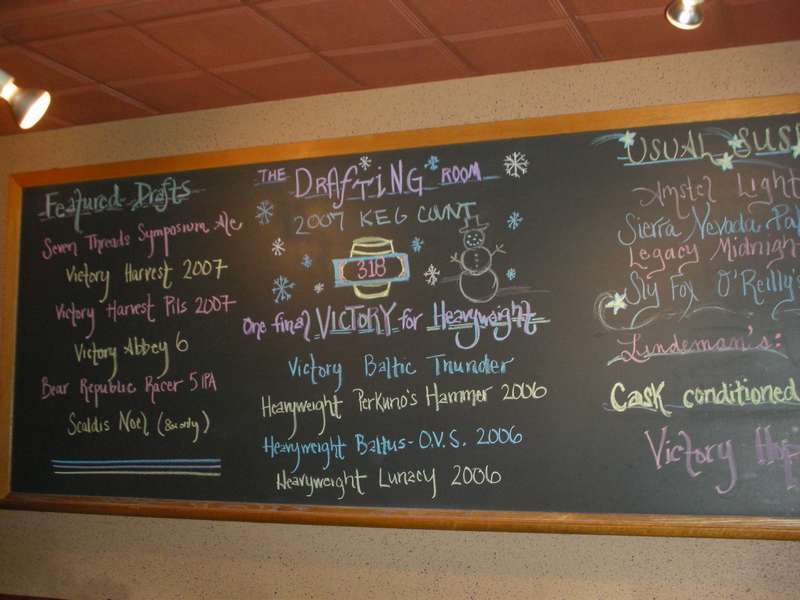 Featured Drafts
Seven Threads Symposium Ale
Victory Harvest 2007
Victory Harvest Pils 2007
Victory Abbey 6
Bear Republic Racer 5 IPA
Scaldis Noel (8oz only)
THE DRAfTiNG ROOM
2007 KEG COUNT
318
One final VICTORY for Heavyweight
Victory Baltic Thunder
Heavyweight Perkuno's Hammer 2006
Heavyweight Baltus-O.V.S. 2006
Heavyweight Lunacy 2006
USUAL SUS
Amstel Light
Sierra Nevada Pal
Legacy Midnigh
Sly Fox O'Reilly's
Lindeman's:
Cask conditioned
Victory Hop